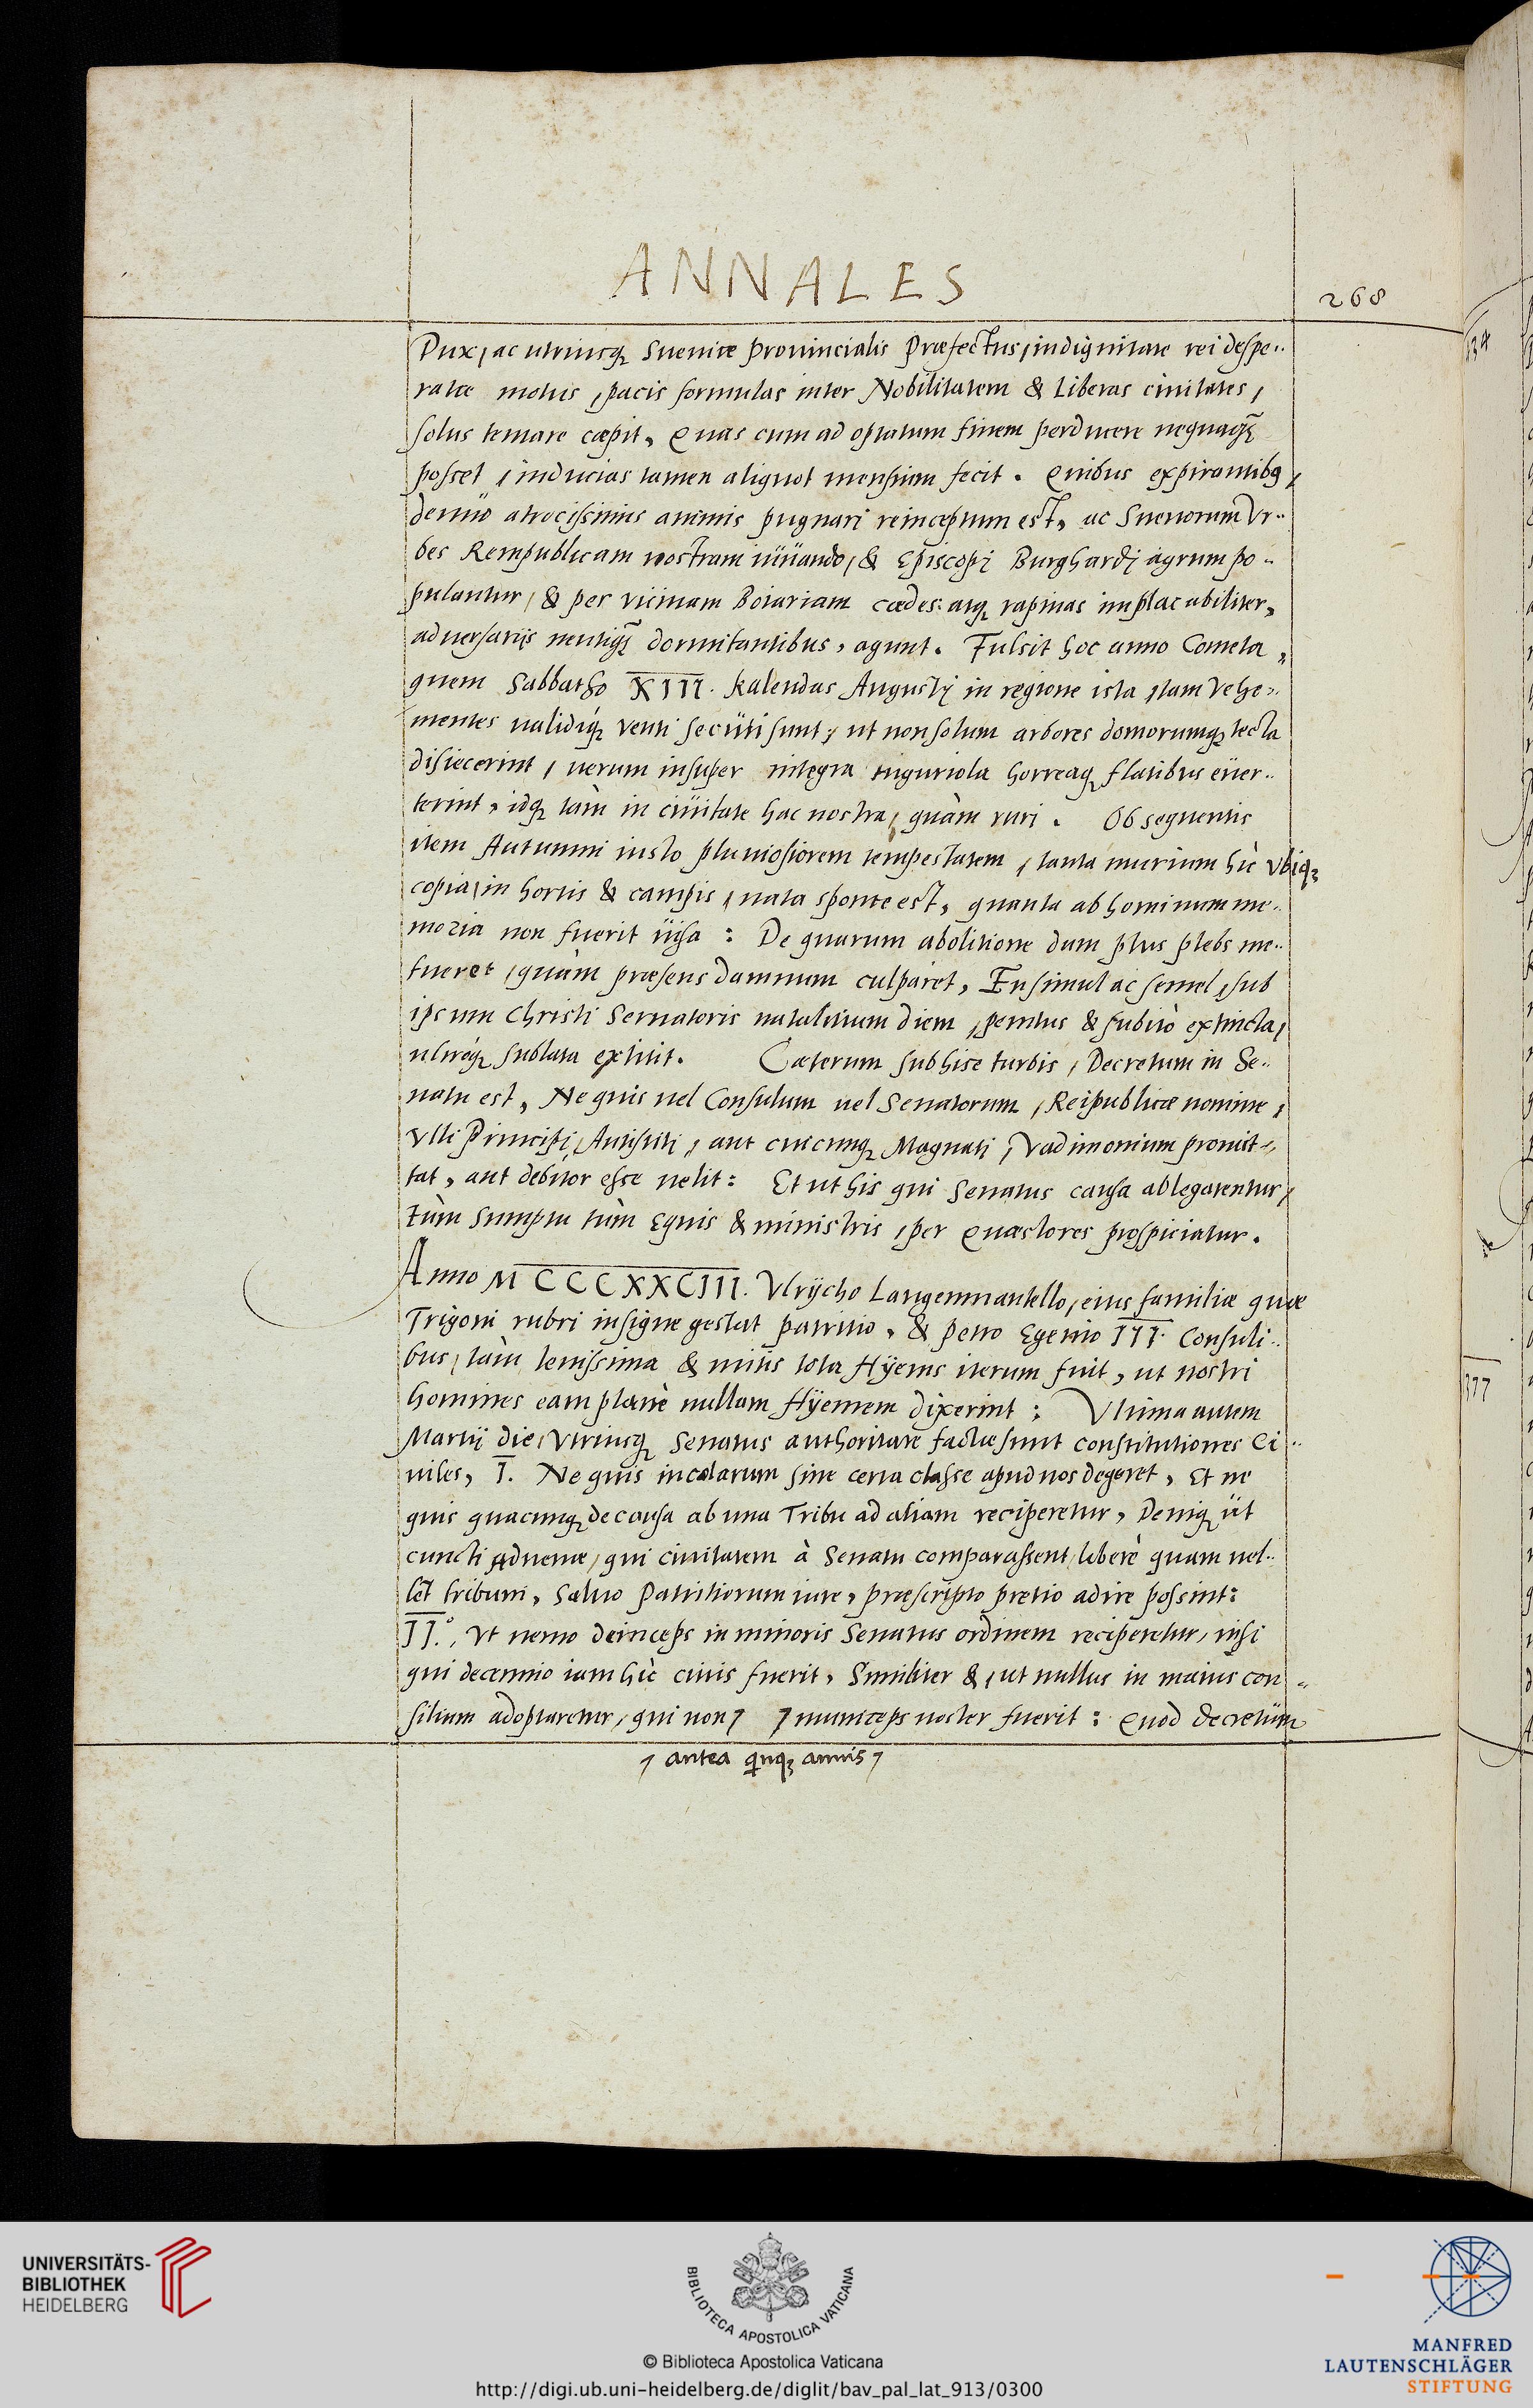 ANNALES
268
Dux, ac utriusq; Sueuiæ Prouincialis Præfectus, indignitate rei despe-
ratæ motus, pacis formulas inter Nobilitatem & Liberas ciuitates,
solus tentare cæpit, Quas cum ad optatum finem perducere nequaq̃
posset, inducias tamen aliquot mensium fecit. Quibus expirantibꝰ,
denuo atrocissimis animis pugnari reinceptum est, ac Sueuorum Vr-
bes Rempublicam nostram iuuando, & Episcopi Burghardi agrum po-
pulantur, & per vicinam Boiariam cædes: atq; rapinas implacabiliter,
aduersarijs neutiq̃ dormitantibus, agunt. Fulsit hoc anno Cometa,
quem Sabbatho XIII. Kalendas Augusti in regione ista, tam Vehe-
mentes ualidiq; venti secuti sunt, ut non solum arbores domorumq; tecta
disiecerint, uerum insuper integra tuguriola horreaq; flatibus euer-
terint, idq; tàm in ciuitate hac nostra, quàm ruri. Ob sequentis
item Autumni iusto pluuiosiorem tempestatem, tanta murium hìc Vbiq;
copia, in hortis & campis, nata sponte est, quanta ab hominum me-
moria non fuerit uisa: De quarum abolitione dum plus plebs me-
tueret, quàm præsens damnum culparet, En simul ac semel, sub
ipsum Christi Seruatoris natalitium diem, penitus & subitò extincta,
ultróq; sublata extitit. Cæterum sub hisce turbis, Decretum in Se-
natu est, Ne quis uel Consulum uel Senatorum, Reipublicæ nomine,
Vlli Principi, Antistiti, aut cuicunq; Magnati, Vadimonium promit-
tat, aut debitor esse uelit: Et ut his qui Senatus causa ablegarentur,
tùm sumptu tùm Equis & ministris, per Quæstores prospiciatur.
Anno M CCCXXCIII. Vlrijcho Langenmantello, eius familiæ quæ
Trigoni rubri insigne gestat patritio, & Petro Egenio III. Consuli-
bus, tàm lenissima & mitis tota Hÿems iterum fuit, ut nostri
homines eam planè nullam Hÿemem dixerint: Vltima autem
Martij die, Vtriusq; Senatus authoritate factæ sunt constitutiones Ci-
uiles, I. Ne quis incolarum sine certa classe apud nos degeret, Et ne
quis quacunq; de causa ab una Tribu ad aliam reciperetur, Deniq; ut
cuncti Aduenæ, qui ciuitatem à Senatu comparassent, liberè quam uel-
let tribum, Saluo Patritiorum iure, præscripto pretio adire possint:
II.º, Vt nemo deinceps in minoris Senatus ordinem reciperetur, nisi
qui decennio iam hìc ciuis fuerit, Similiter &, ut nullus in maius con-
silium adoptaretur, qui non ⁊ ⁊ municeps noster fuerit: Quod decretum
⁊ antea qinq; annis ⁊
377
UNIVERSITÄTS-
BIBLIOTHEK
HEIDELBERG
BIBLIOTECA APOSTOLICA VATICANA
© Biblioteca Apostolica Vaticana
http://digi.ub.uni-heidelberg.de/diglit/bav_pal_lat_913/0300
MANFRED
LAUTENSCHLÄGER
STIFTUNG